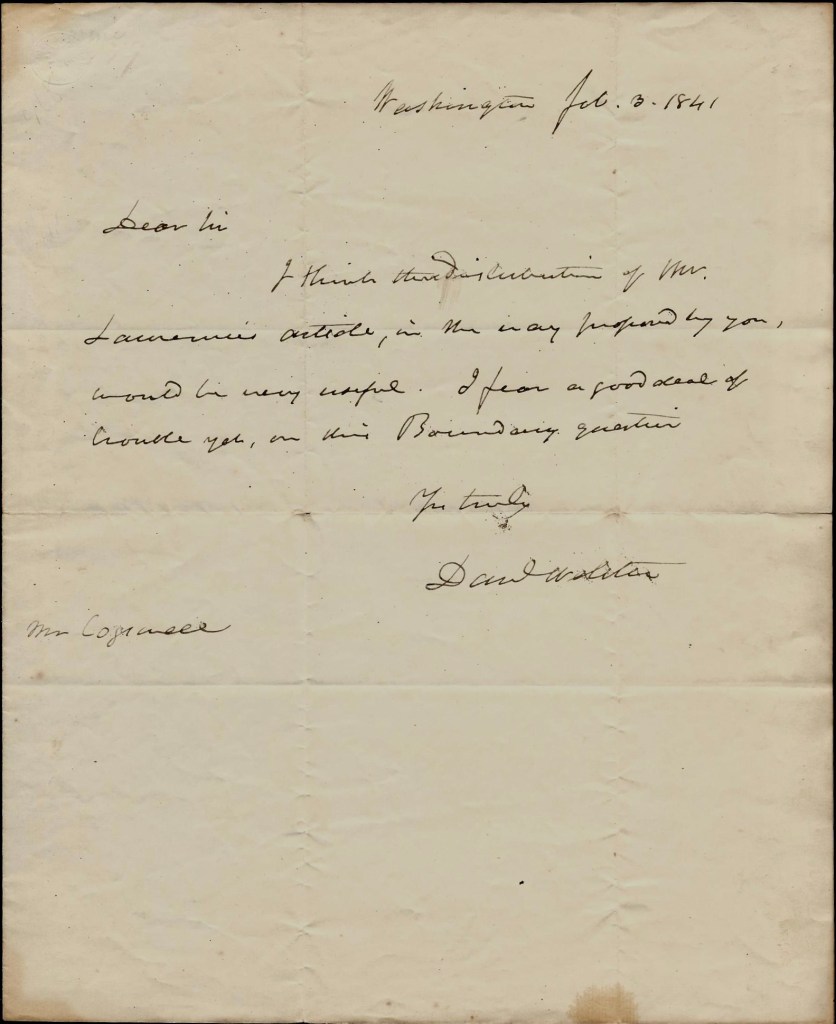 Washington Feb. 3. 1841
Dear Sir
I think the distribution of Mr.
Lawrence's article, in the way proposed by you,
would be very useful. I fear a good deal of
trouble yet, on this Boundary question
Yrs truly
Danl Webster
Mr Cogswell